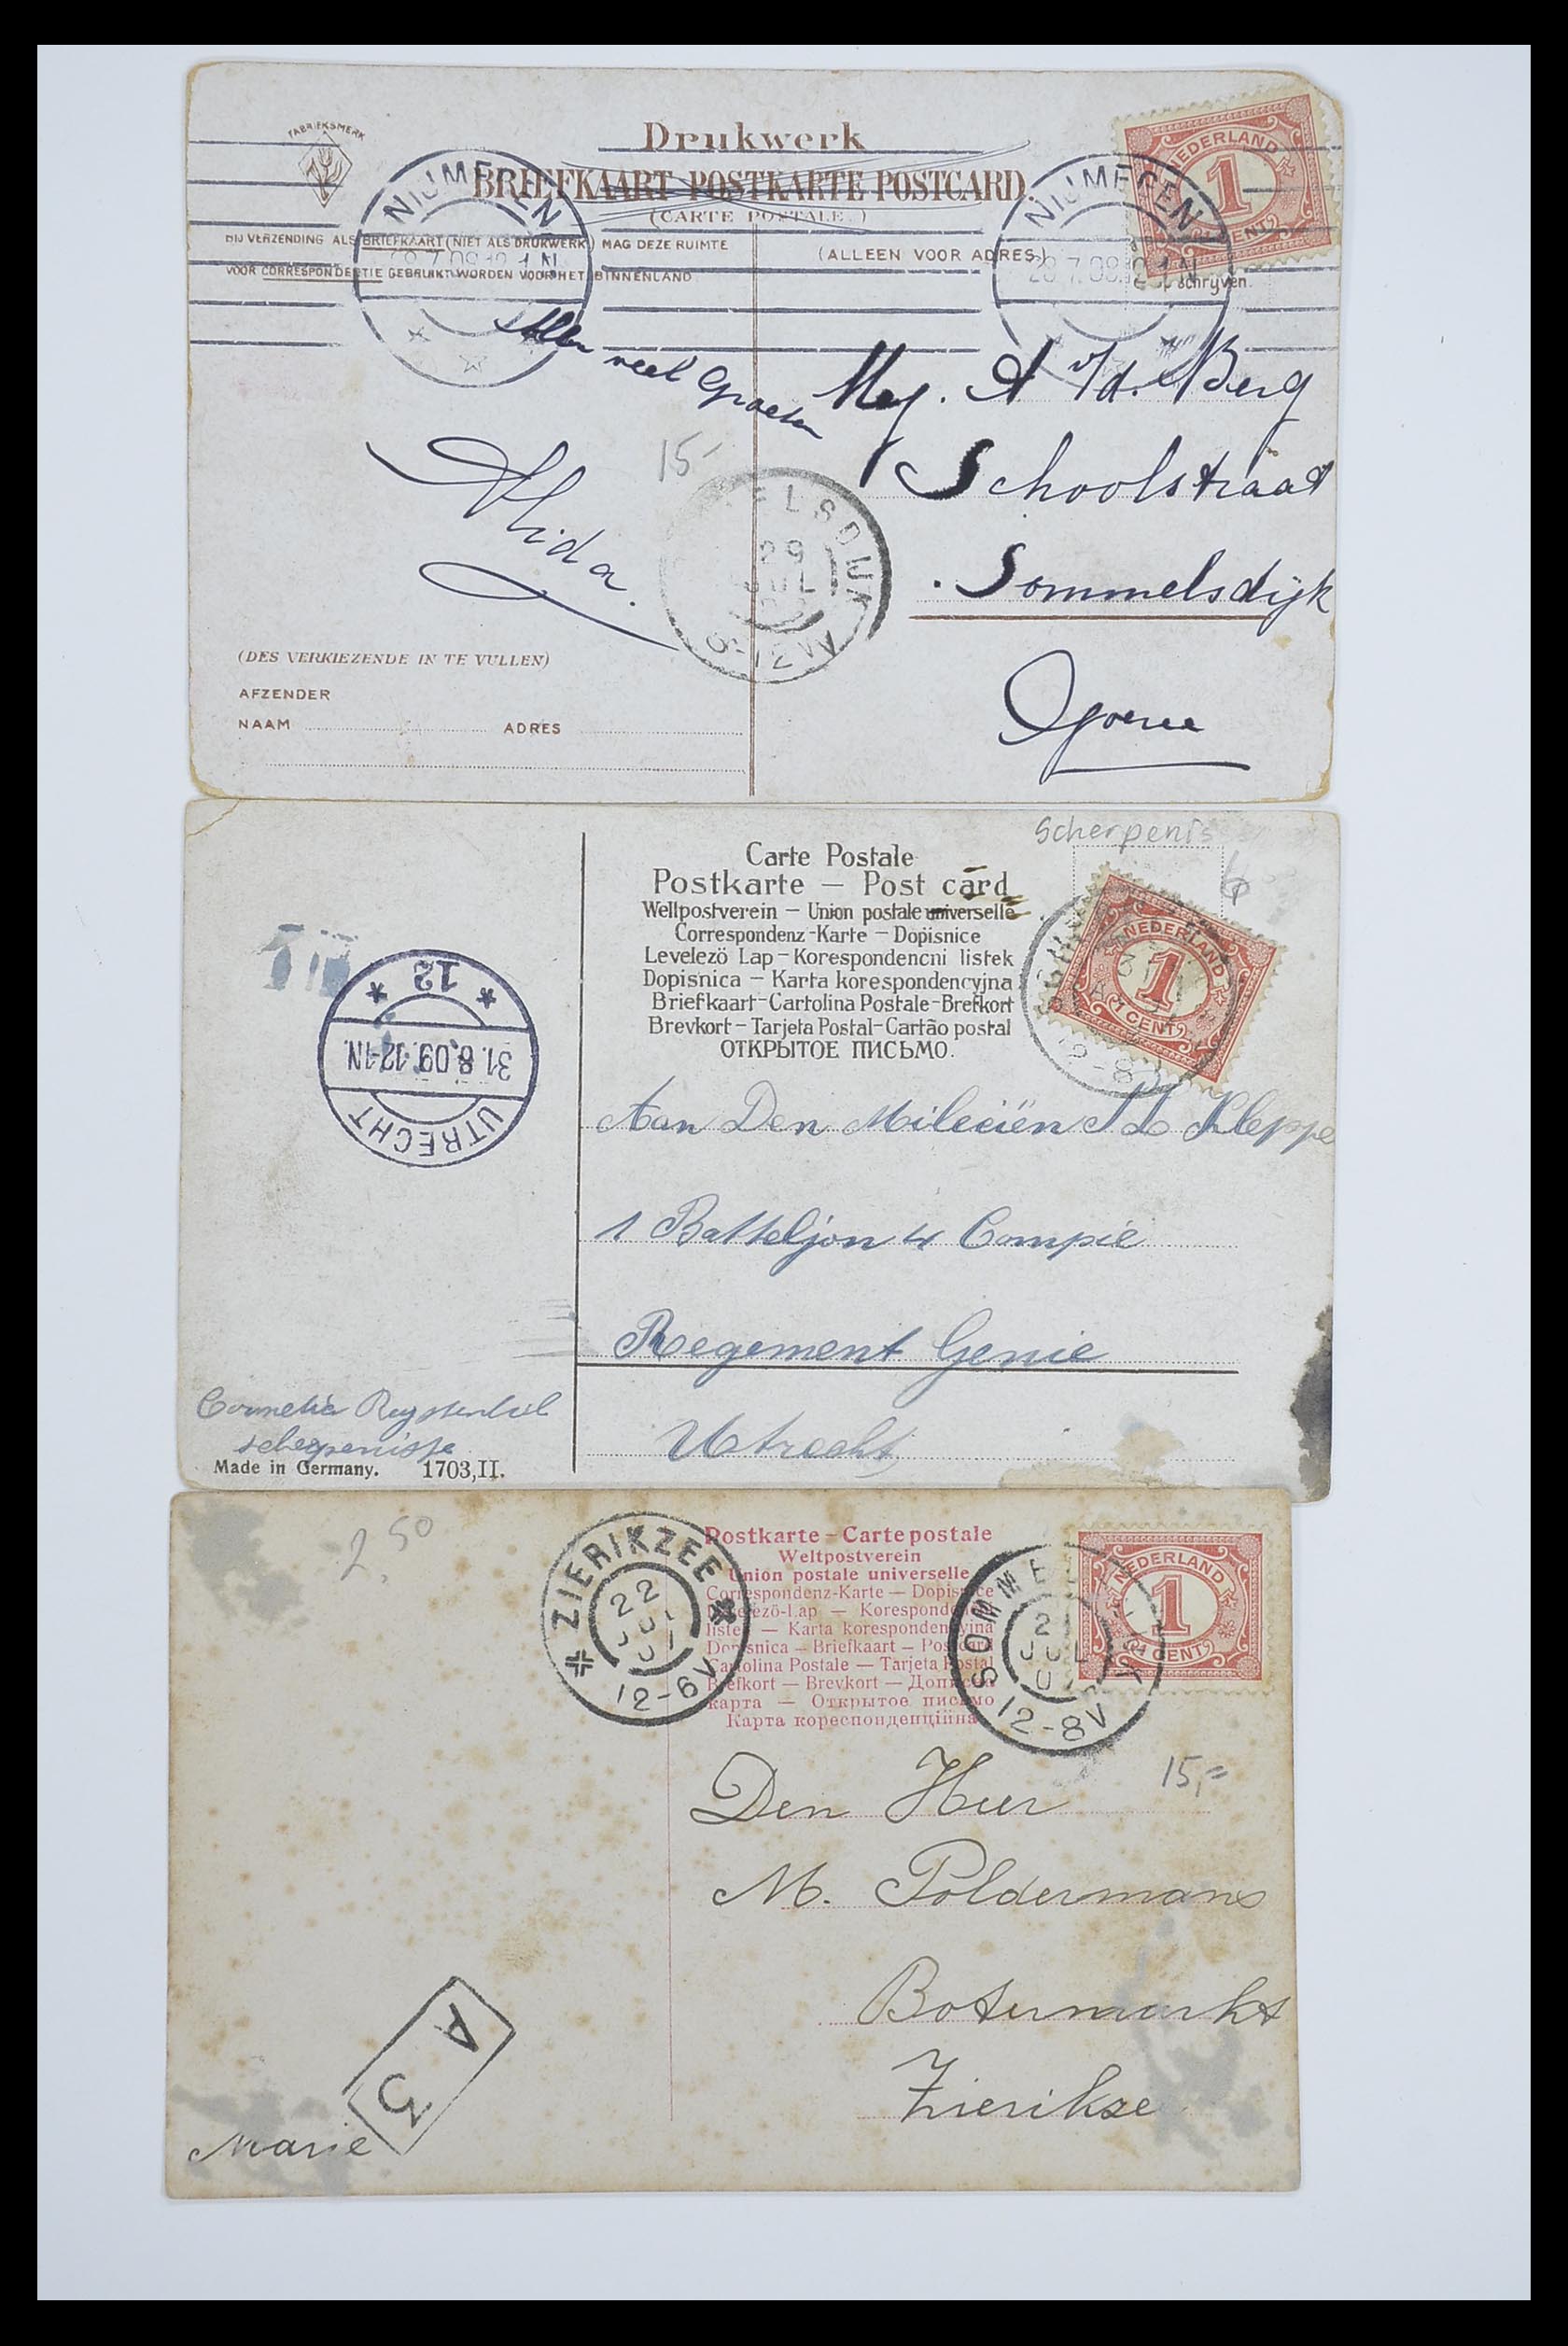 FABRIEKSMERK
Drukwerk
BRIEFKAART POSTKARTE POSTCARD.
(CARTE POSTALE.)
NIJMEGEN
28.7.08.12-1N
NIJMEGEN
28.7.08.12-1N
NEDERLAND
1
CENT
BIJ VERZENDING ALS BRIEFKAART (NIET ALS DRUKWERK) MAG DEZE RUIMTE
VOOR CORRESPONDENTIE GEBRUIKT WORDEN VOOR HET BINNENLAND
(ALLEEN VOOR ADRES)
schryven.
Allen veel Groeten
Alida.
15-
Mej. A v/d. Berg
Schoolstraat
Sommelsdijk
Goeree
ELSDIJK
29
JUL
9-12V
(DES VERKIEZENDE IN TE VULLEN)
AFZENDER
NAAM ADRES
Scherpenis
6
Carte Postale
Postkarte – Post card
Weltpostverein – Union postale universelle
Correspondenz-Karte – Dopisnice
Levelezö Lap – Korespondencni listek
Dopisnica – Karta korespondencyjna
Briefkaart – Cartolina Postale – Brefkort
Brevkort – Tarjeta Postal – Cartão postal
ОТКРЫТОЕ ПИСЬМО.
NEDERLAND
1
1 CENT
12-8
UTRECHT
31.8.09.12-1N.
* 12 *
Aan Den Miliciën Kleppe
1 Batteljon 4 Compie
Regement Genie
Utrecht
Cornelia
scherpenisse
Made in Germany. 1703,II.
2,50
ZIERIKZEE
22
JUL
07
12-6V
Postkarte – Carte postale
Weltpostverein
Union postale universelle
Correspondenz-Karte — Dopisnice
Levelezö-Lap — Korespondenční
listek — Karta korespondencyjna
Dopisnica — Briefkaart — Post card
Cartolina Postale — Tarjeta Postal
Brefkort — Brevkort — Дописна
карта — Открытое письмо
Карта кореспонденційна
SOMMELSDIJK
21
JUL
07
12-8V
NEDERLAND
1
1 CENT
15,=
Den Heer
M. Poldermans
Botermarkt
Zierikzee
A
3
Marie